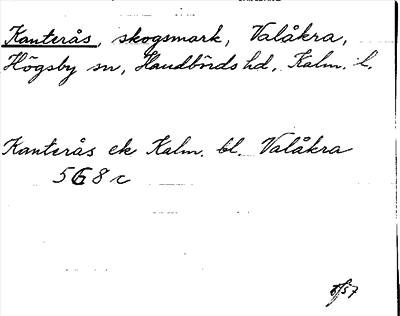 Kanterås, skogsmark, Valåkra,
Högsby sn, Handbörds hd, Kalm. l.
Kanterås ek Kalm. bl. Valåkra
568 c